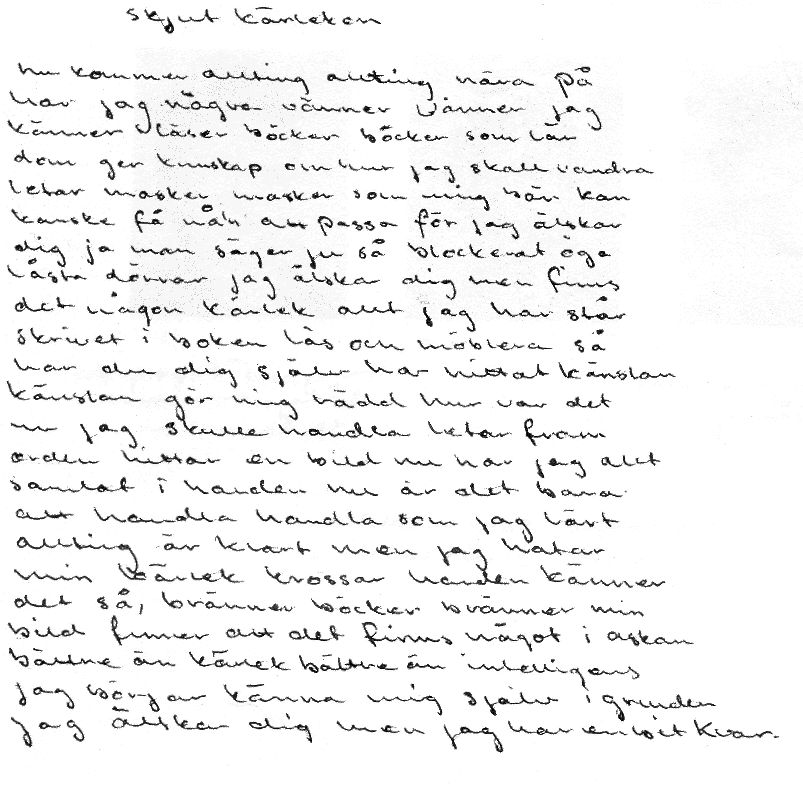 skjut kärleken
nu kommer allting allting nära på
har jag några vänner vänner jag
känner läser böcker böcker som lär
dom ger kunskap om hur jag skall vandra
letar masker masker som mig bär kan
kanske få nå'n att passa för jag älskar
dig ja man säger ju så blockerat öga
låsta dörrar jag älskar dig men finns
det någon kärlek allt jag har står
skrivet i boken läs och möblera så
har du dig själv har hittat känslan
känslan gör mig rädd hur var det
nu jag skulle handla letar fram
orden hittar en bild nu har jag allt
samlat i handen nu är det bara
att handla handla som jag lärt
allting är klart men jag hatar
min kärlek krossar handen känner
det så, bränner böcker bränner min
bild finner att det finns något i askan
bättre än kärlek bättre än intelligens
jag börjar känna mig själv i grunden
jag älskar dig men jag har en bit kvar.